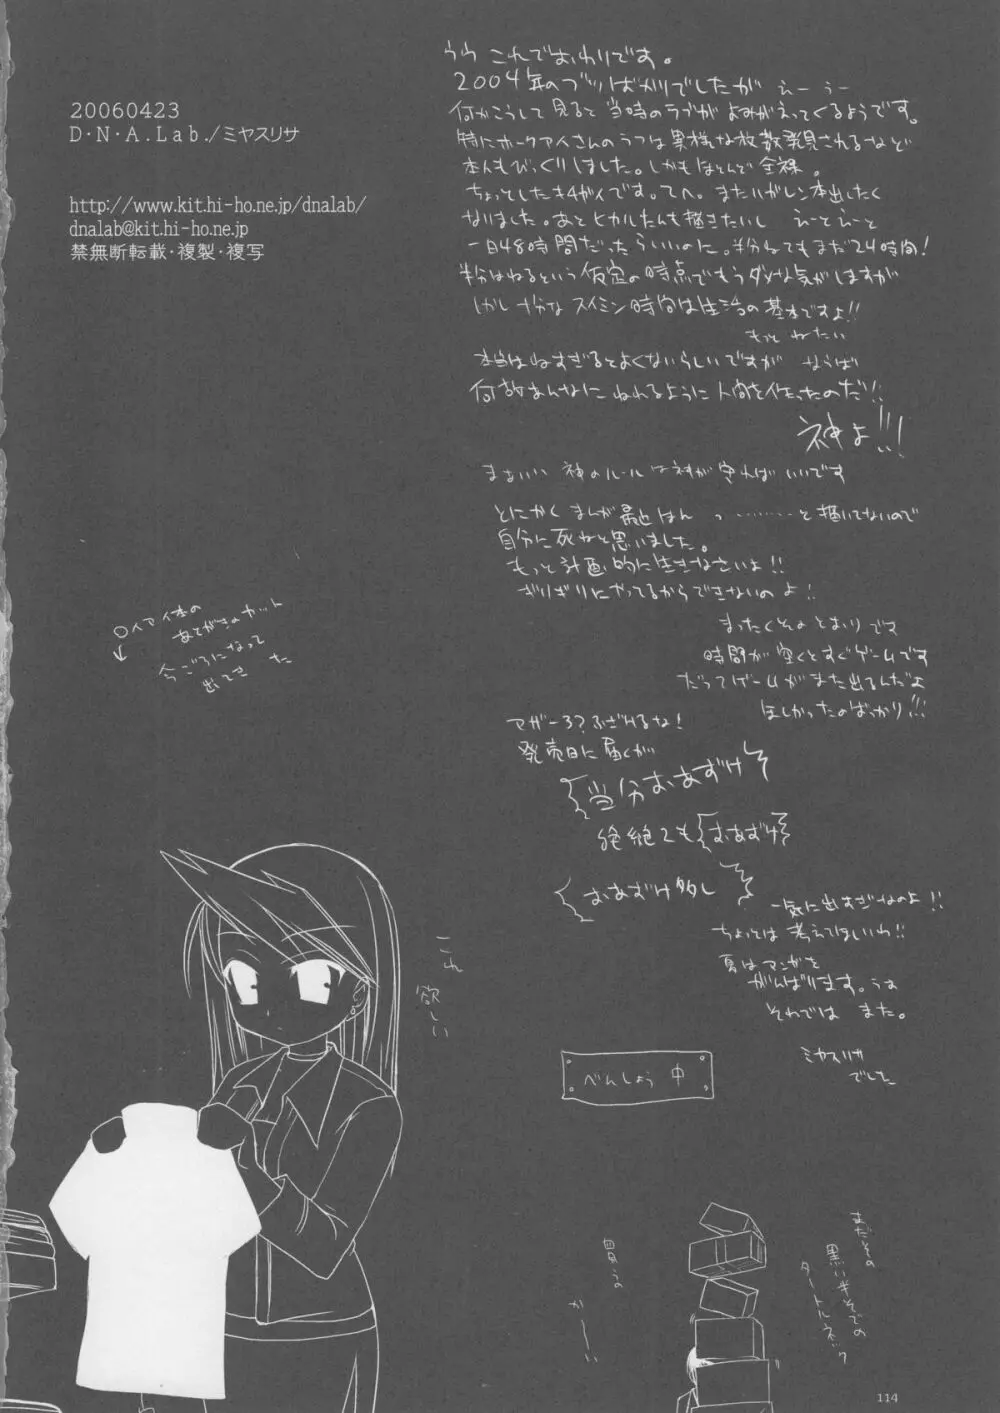 20060423
D・N・A.Lab./ミヤスリサ
http://www.kit.hi-ho.ne.jp/dnalab/
dnalab@kit.hi-ho.ne.jp
禁無断転載・複製・複写
うう これでおわりです。
2004年のブツばかりでしたが えーうー
何かこうして見ると当時のラブがよみがえってくるようです。
特にホークアイさんのラフは異様な枚数発見されるなど
本人もびっくりしました。しかもほとんど全裸。
ちょっとしたキ4ガイです。てへ。またハガレン本出したく
なりました。あとヒカルたんも描きたいし えーとえーと
一日48時間だったらいいのに。半分ねてもまだ24時間!
半分はねるという仮定の時点でもうダメな気がしますが
しかし十分なスイミン時間は生活の基本ですよ!!
もっと ねたい
本当はねすぎるとよくないらしいですが ならば
何故あんなにねれるように人間を作ったのだ!!
神よ!!!
まぁいい 神のルールは神が守ればいいです
とにかく まんが最近はん っ………と描いてないので
自分に死ねと思いました。
もっと計画的に生きなさいよ!!
ギリギリにやってるからできないのよ!!
まったくそのとおりです
時間が空くとすぐゲームです
だってゲームがまた出るんだよ
ほしかったのばっかり!!!
マザー3?ふざけるな!
発売日に届くが
当分おあずけ
絶てもおあずけ
おあずけ多し
一気に出すぎなのよ!!
ちょっとは考えてほしいわ!!
夏はマンガを
がんばります。うぉ
それでは また。
ミヤスリサ
でした
〇イアイ本の
あとがきのカット
今ごろになって
出てきた
これ
欲しい
べんしょう中
買うの
かーい
まだその
黒い半そでの
タートルネック
114